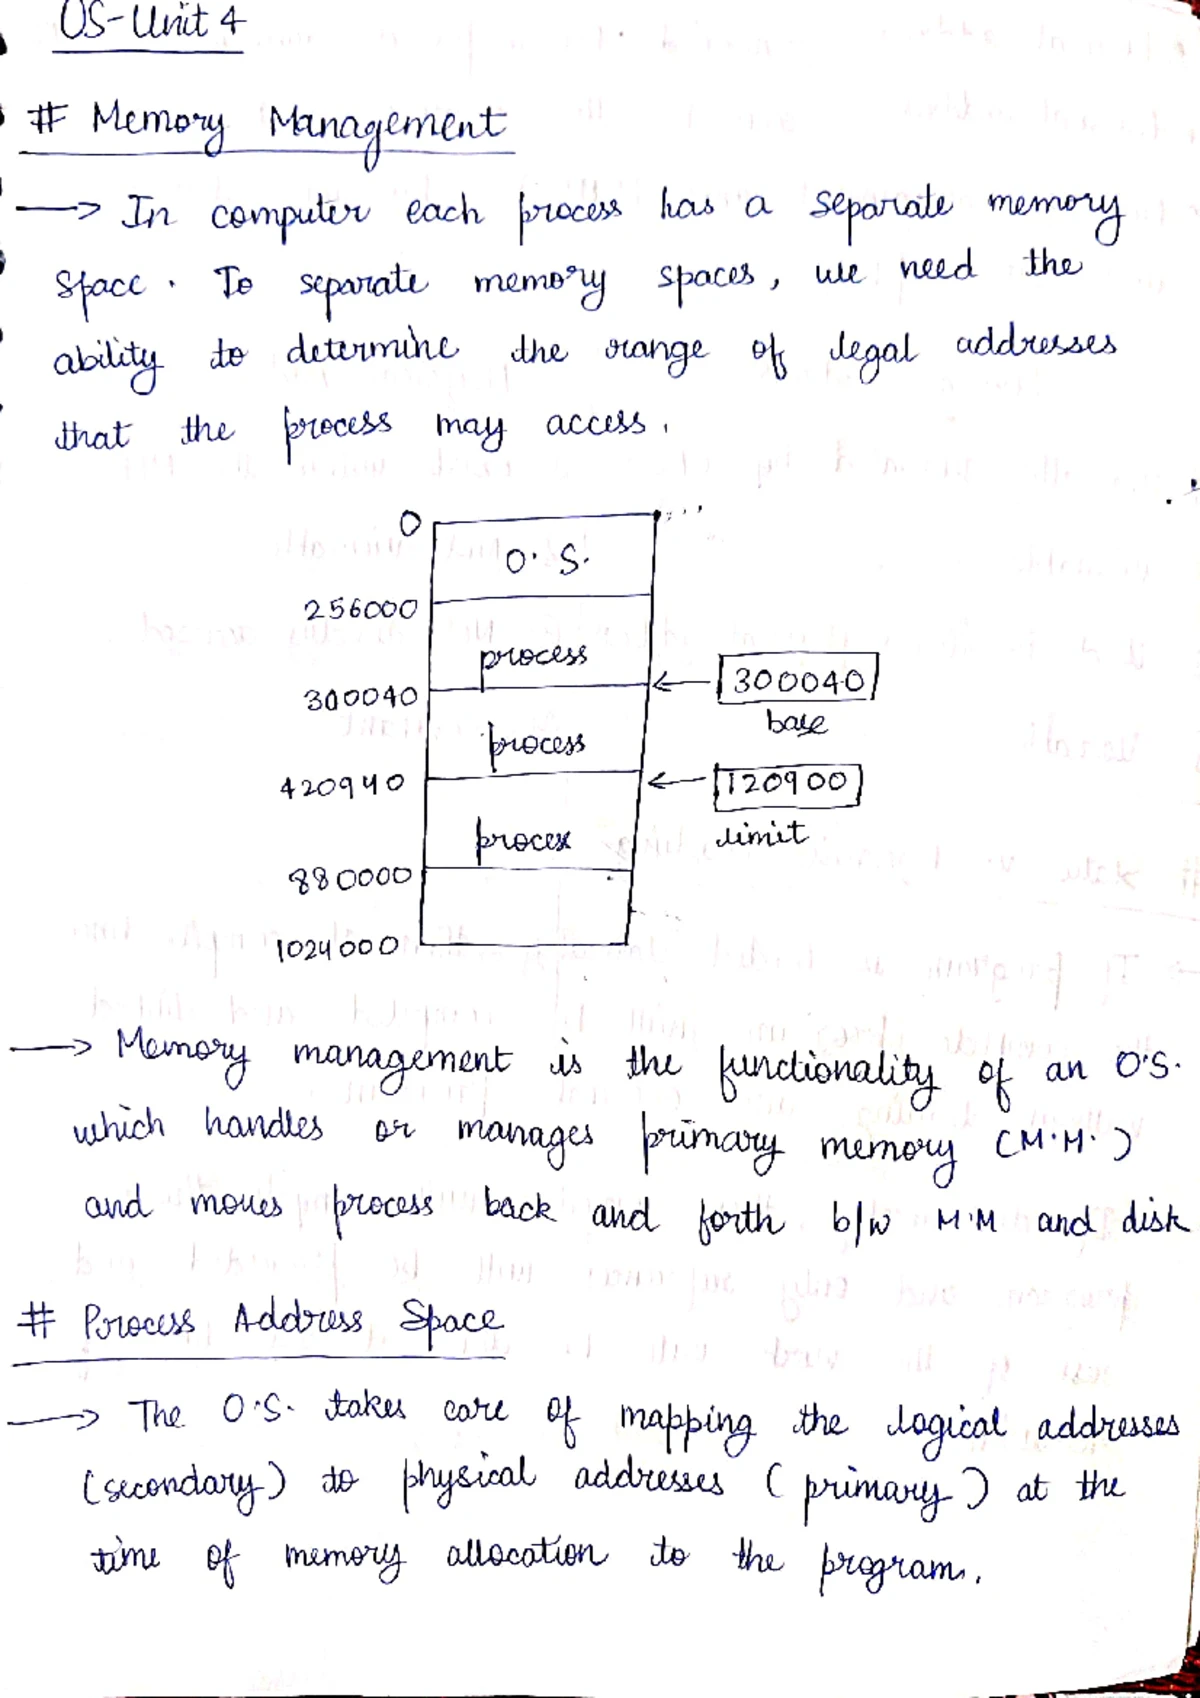 OS-Unit 4
# Memory Management
→ In computer each process has a separate memory
space. To separate memory spaces, we need the
ability to determine the range of legal addresses
that the process may access.
0
O.S.
256000
process
300040
300040
base
process
420940
120900
limit
process
880000
1024000
→ Memory management is the functionality of an O.S.
which handles or manages primary memory (M.M.)
and moves process back and forth b/w M.M and disk
# Process Address Space
→ The O.S. takes care of mapping the logical addresses
(secondary) to physical addresses (primary) at the
time of memory allocation to the program.